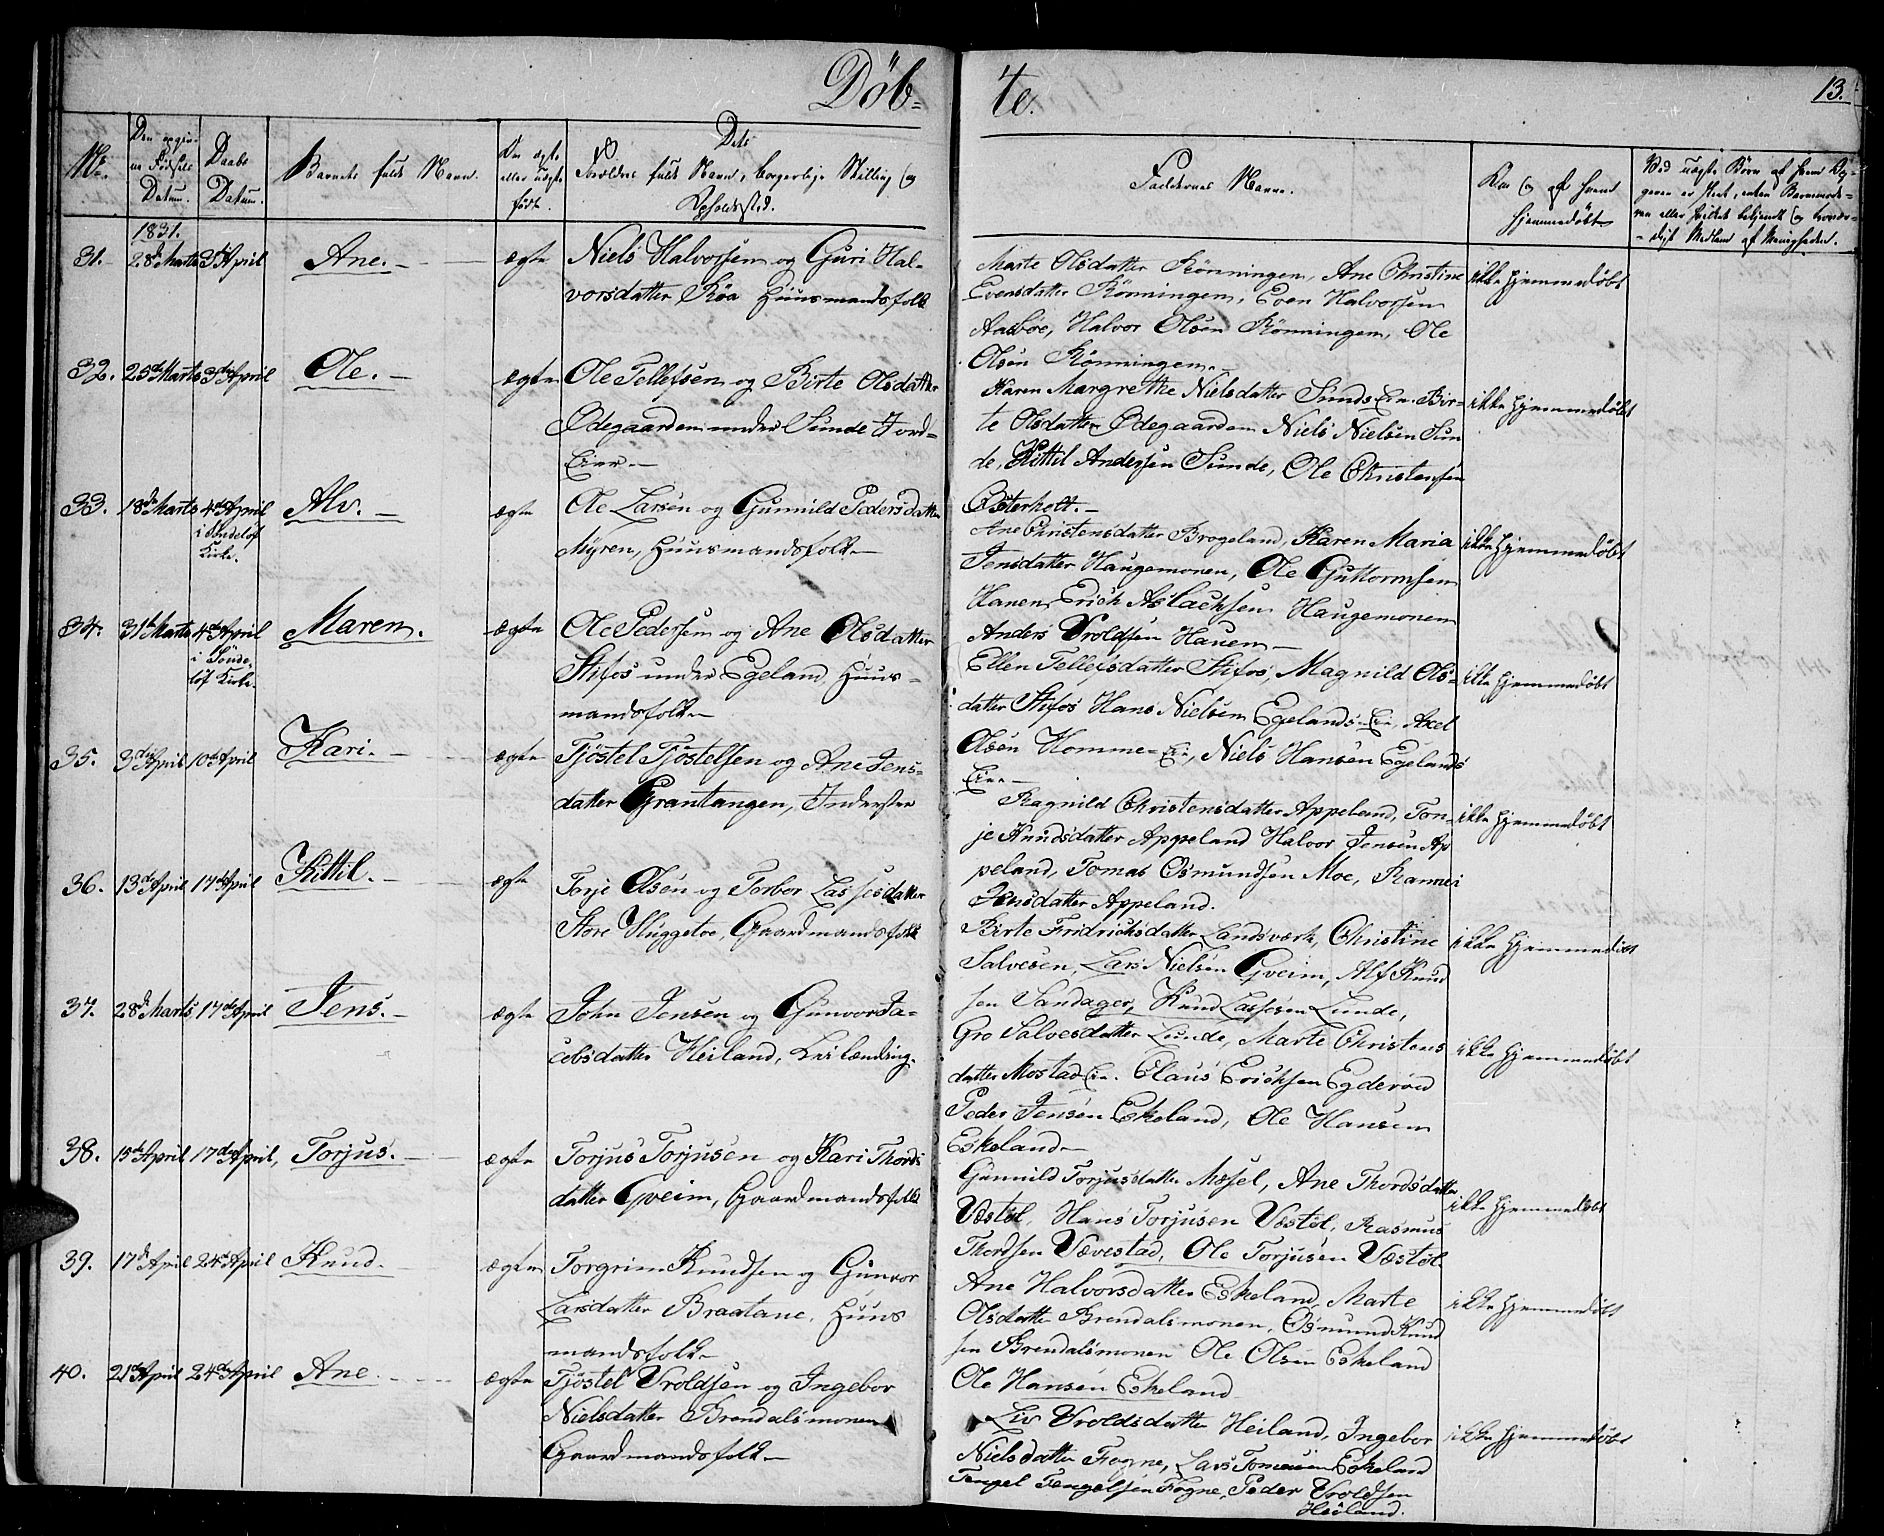 Døb-
te.
13.
No.
Den opgiv-
ne Fødsels
Datum.
Daabs
Datum.
Barnets fulde Navn.
Om ægte
eller uægte
født.
Dets
Forældres fulde Navn, borgerlige Stilling og
Opholdssted.
Faddernes Navne.
hjemmedøbt
1831.
31. 28de Marts 3die April Ane. ægte
Niels Halvorsen og Guri Hal-
vorsdatter Röa Huusmandsfolk
Marte Olsdatter Rönningen, Ane Christine
Evensdatter Rönningen, Even Halvorsen
Aasböe, Halvor Olsen Rönningen, Ole
Olsen Rönningen.
ikke hjemmedöbt
32. 25de Marts 3die April Ole. ægte
Ole Tellefsen og Birte Olsdatter
Ödegaarden under Sunde Jord-
Eier.
Karen Margrethe Nielsdatter Sunds Eie. Bir-
te Olsdatter Ödegaarden Niels Nielsen Sun
de, Kittil Andersen Sunde, Ole Christensen
Österholt.
ikke hjemmedöbt
33. 18de Marts 4de April
i Söndelöf
Kirke.
Alv. ægte
Ole Larsen og Gunnild Pedersdatter
Myren, Huusmandsfolk
Ane Christensdatter Brogeland, Karen Maria
Jensdatter Haugemonen, Ole Guttormsen
Hanen, Erich Aslachsen Haugemonen
Anders Vroldsen Hauen
ikke hjemmedöbt
34. 31te Marts 4de April
i Sönde-
löf Kirke.
Maren. ægte
Ole Pedersen og Ane Olsdatter
Stifos under Egeland, Huus-
mandsfolk
Ellen Tellefsdatter Stifos, Magnild Ols-
datter Stifos Hans Nielsen Egelands Eie, Axel
Olsen Homme-Eie, Niels Hansen Egelands
Eie
ikke hjemmedöbt
35. 3die April 10de April Kari. ægte
Tjöstel Tjöstelsen og Ane Jens-
datter Grantangen, Inderster
Ragnild Christensdatter Appeland, Ton-
je Knudsdatter Appeland Halvor Jensen Ap
peland, Tomas Osmundsen Moe, Rannei
Jensdatter Appeland.
ikke hjemmedöbt
36. 13de April 17de April Kittil. ægte
Torje Olsen og Torbor Lassesdatter
Store Sluggetoe, Gaardmandsfolk
Birte Fridrichsdatter Landsværk, Christine
Salvesen, Lars Nielsen Gveim, Alf Knud
sen Sandager, Knud Lassesen Lunde,
ikke hjemmedöbt
37. 28de Marts 17de April Jens. ægte
John Jensen og Gunvor Ja-
cobsdatter Heiland, Leilænding.
Gro Salvesdatter Lunde, Marte Christens
datter Mostad Eie. Claus Erichsen Egderöed
Peder Jensen Eskeland, Ole Hansen
Eskeland
ikke hjemmedöbt
38. 15de April 17de April, Torjus. ægte
Torjus Torjusen og Kari Thords
datter Gveim, Gaardmandsfolk
Gunnild Torjusdatter Mösel, Ane Thordsdatter
Væstöl, Hans Torjusen Væstöl, Rasmus
Thordsen Vævestad, Ole Torjusen Væstöl
ikke hjemmedöbt
39. 17de April 24de April Knud. ægte
Torgrim Knudsen og Gunvor
Larsdatter Braatane, Huus
mandsfolk
Ane Halvorsdatter Eskeland, Marte
Olsdatter Brendalsmonen, Osmund Knud
sen Brendalsmonen Ole Olsen Eskeland
Ole Hansen Eskeland
ikke hjemmedöbt
40. 21de April 24de April Ane. ægte
Tjöstel Vroldsen og Ingebor
Nielsdatter Brendalsmonen
Gaardmandsfolk
Liv Vroldsdatter Heiland, Ingebor
Nielsdatter Fogne, Lars Tomesen Eskeland
Tengel Tengelsen Fogne, Peder Vroldsen
Heiland.
ikke hjemmedöbt